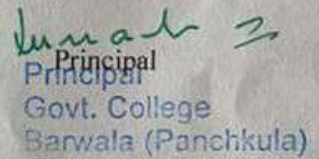 Principal
Principal
Govt. College
Barwala (Panchkula)